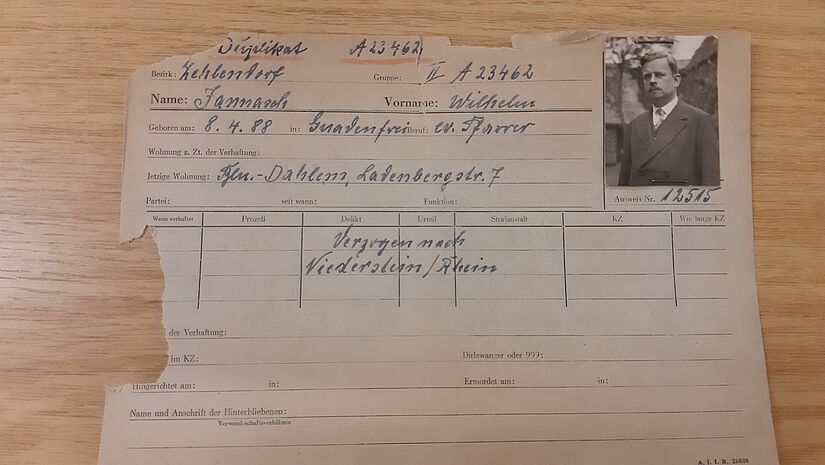 Duplikat A 23462
Bezirk: Zehlendorf Gruppe: II A 23462
Name: Jannasch Vorname: Wilhelm
Geboren am: 8. 4. 88 in: Gnadenfrei Beruf: ev. Pfarrer
Wohnung z. Zt. der Verhaftung:
Jetzige Wohnung: Bln.-Dahlem, Ladenbergstr. 7
Partei: seit wann: Funktion:
Ausweis Nr. 12515
Wann verhaftet Prozeß Delikt Urteil Strafanstalt KZ Wie lange KZ
Verzogen nach
Niederstein/Rhein
der Verhaftung:
im KZ: Dirlewanger oder 999:
Hingerichtet am: in: Ermordet am: in:
Name und Anschrift der Hinterbliebenen:
Verwandschaftsverhältnis
A. I. I. B. 26000